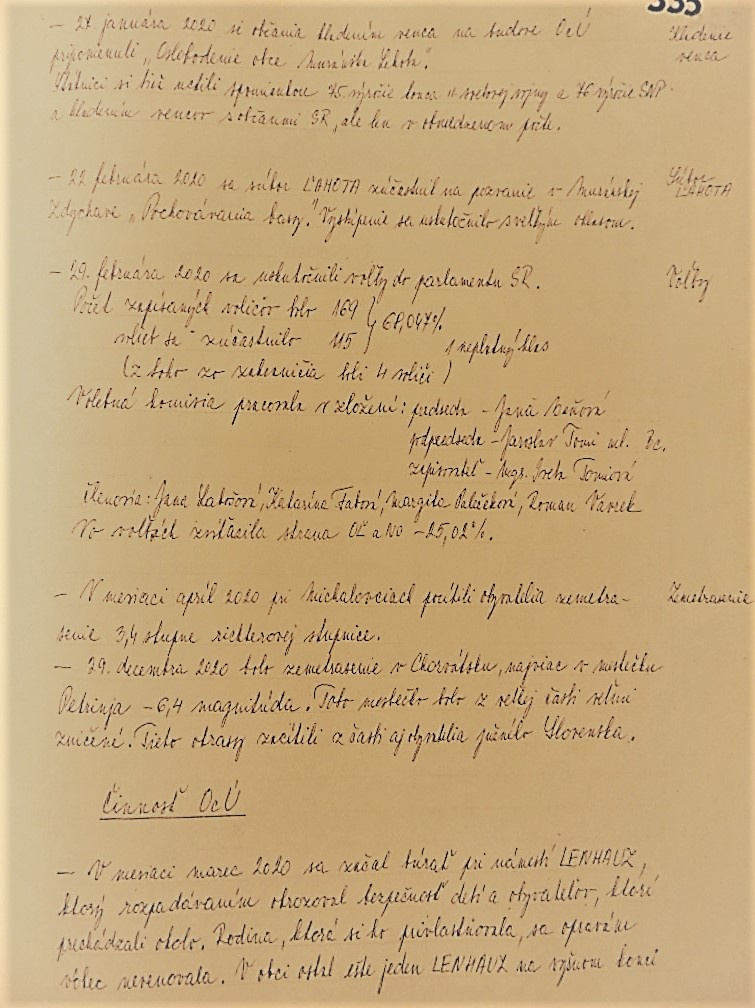 335
– 27. januára 2020 si občania kladením venca na budove OcÚ
Kladenie
venca
pripomenuli „Oslobodenie obce Muránska Lehota".
si tiež uctili spomienkou 75. výročie konca II svetovej vojny a 76 výročie SNP
a kladením vencov s občanmi SR, ale len v obmedzenom počte.
– 22 februára 2020 sa súbor ĽAHOTA zúčastnil na pozvanie v Muránskej
Súbor
ĽAHOTA
Zdychave „Pochovávania basy". Vystúpenie sa uskutočnilo s veľkým ohlasom.
– 29. februára 2020 sa uskutočnili voľby do parlamentu SR.
Voľby
Počet zapísaných voličov bolo 169 } 68,047%
volieb sa zúčastnilo 115
1 neplatný hlas
(z toho zo zahraničia boli 4 voliči)
Volebná komisia pracovala v zložení: predseda – Jana
podpredseda – Jaroslav Tomi ml. Bc.
zapisovateľ – Mgr. Iveta Tomiová
členovia: Jana Katarína Margita Roman Vavrek
Vo voľbách zvíťazila strana OĽ a NO – 25,02%.
– V mesiaci apríl 2020 pri Michalovciach pocítili obyvatelia zemetra-
Zemetrasenie
senie 3,4 stupne richterovej stupnice.
– 29. decembra 2020 bolo zemetrasenie v Chorvátsku, najviac v mestečku
Petrinja – 6,4 magnitúda. Toto mestečko bolo z veľkej časti veľmi
zničené. Tieto otrasy zacítili z časti aj obyvatelia južného Slovenska.
Činnosť OcÚ
– V mesiaci marec 2020 sa začal búrať pri námestí LENHAUZ,
ktorý rozpadávaním ohrozoval bezpečnosť detí a obyvateľov, ktorí
prechádzali okolo. Rodina, ktorá si ho privlastňovala, sa opravám
vôbec nevenovala. V obci ostal ešte jeden LENHAUZ na vyšnom konci